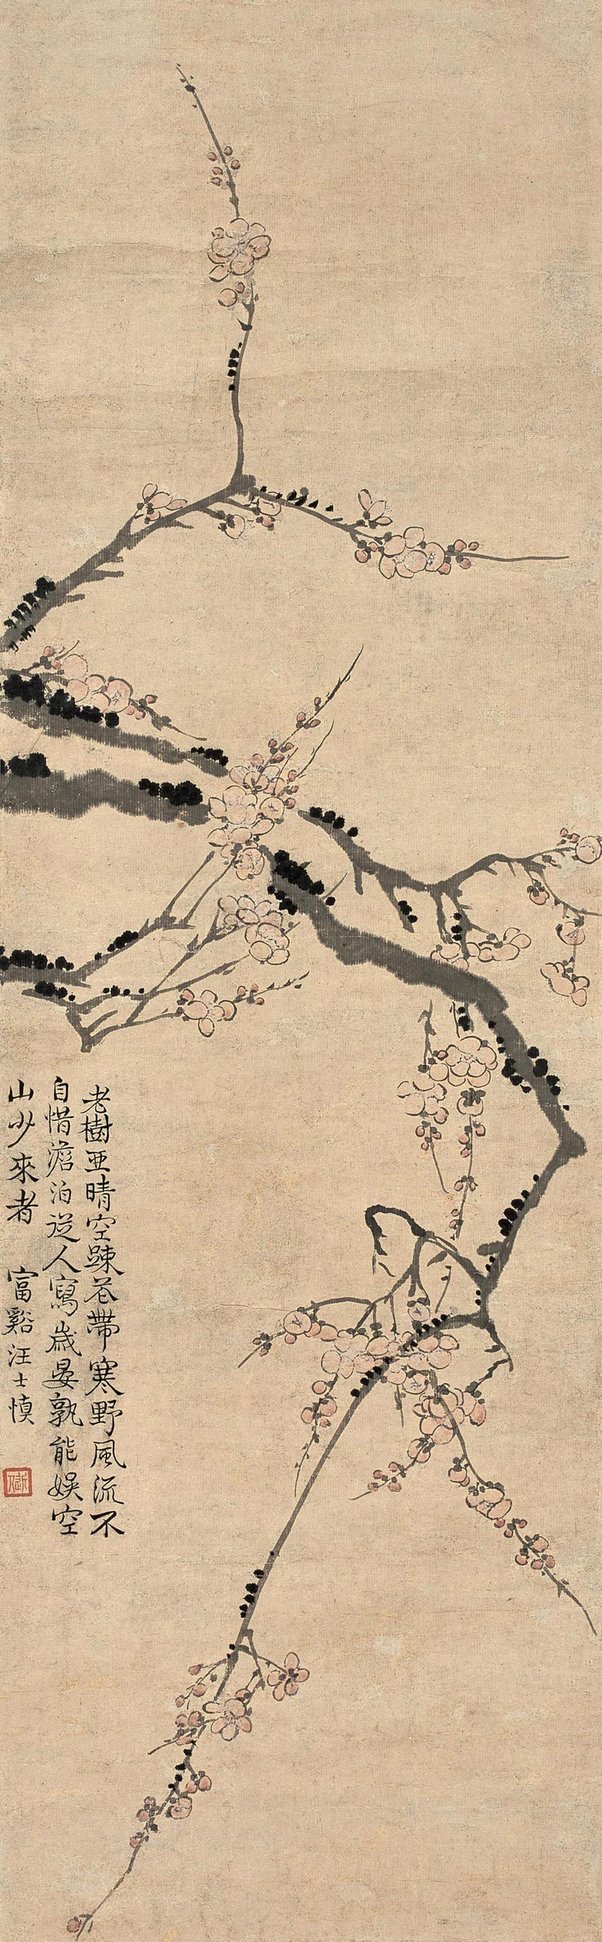 老樹亜晴空踈花帶寒野風流不
自惜澹泊從人寫歲晏孰能娛空
山少來者 富谿汪士慎